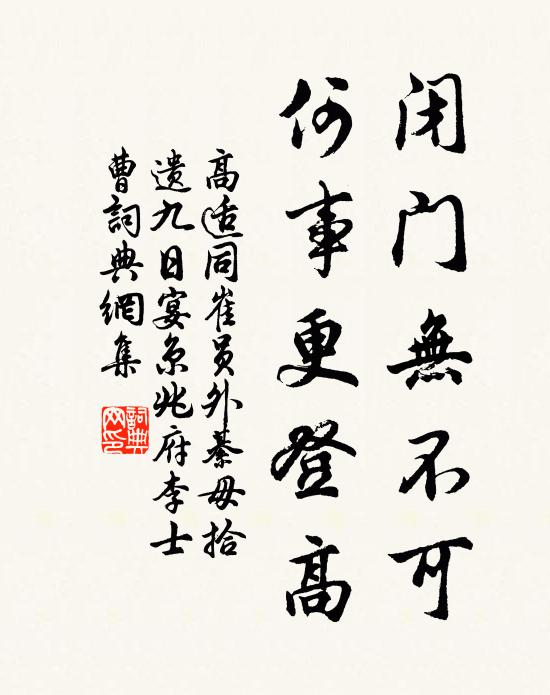 闭门無不可
何事更登高
高适同崔员外綦毋拾
遗九日宴京兆府李士
曹詞典網集
詞典
网印